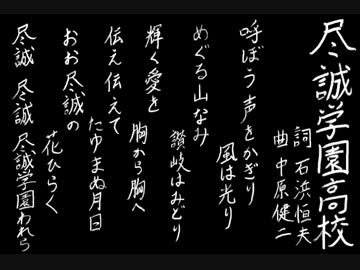 尽誠学園高校
詞 石浜恒夫
曲 中原健二
呼ぼう声をかぎり
風は光り
めぐる山なみ
讃岐はみどり
輝く愛を
胸から胸へ
伝え伝えて
たゆまぬ月日
おお尽誠の
花ひらく
尽誠 尽誠 尽誠学園われら